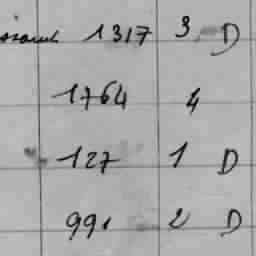 1317 3 D
1764 4
127 1 D
991 2 D